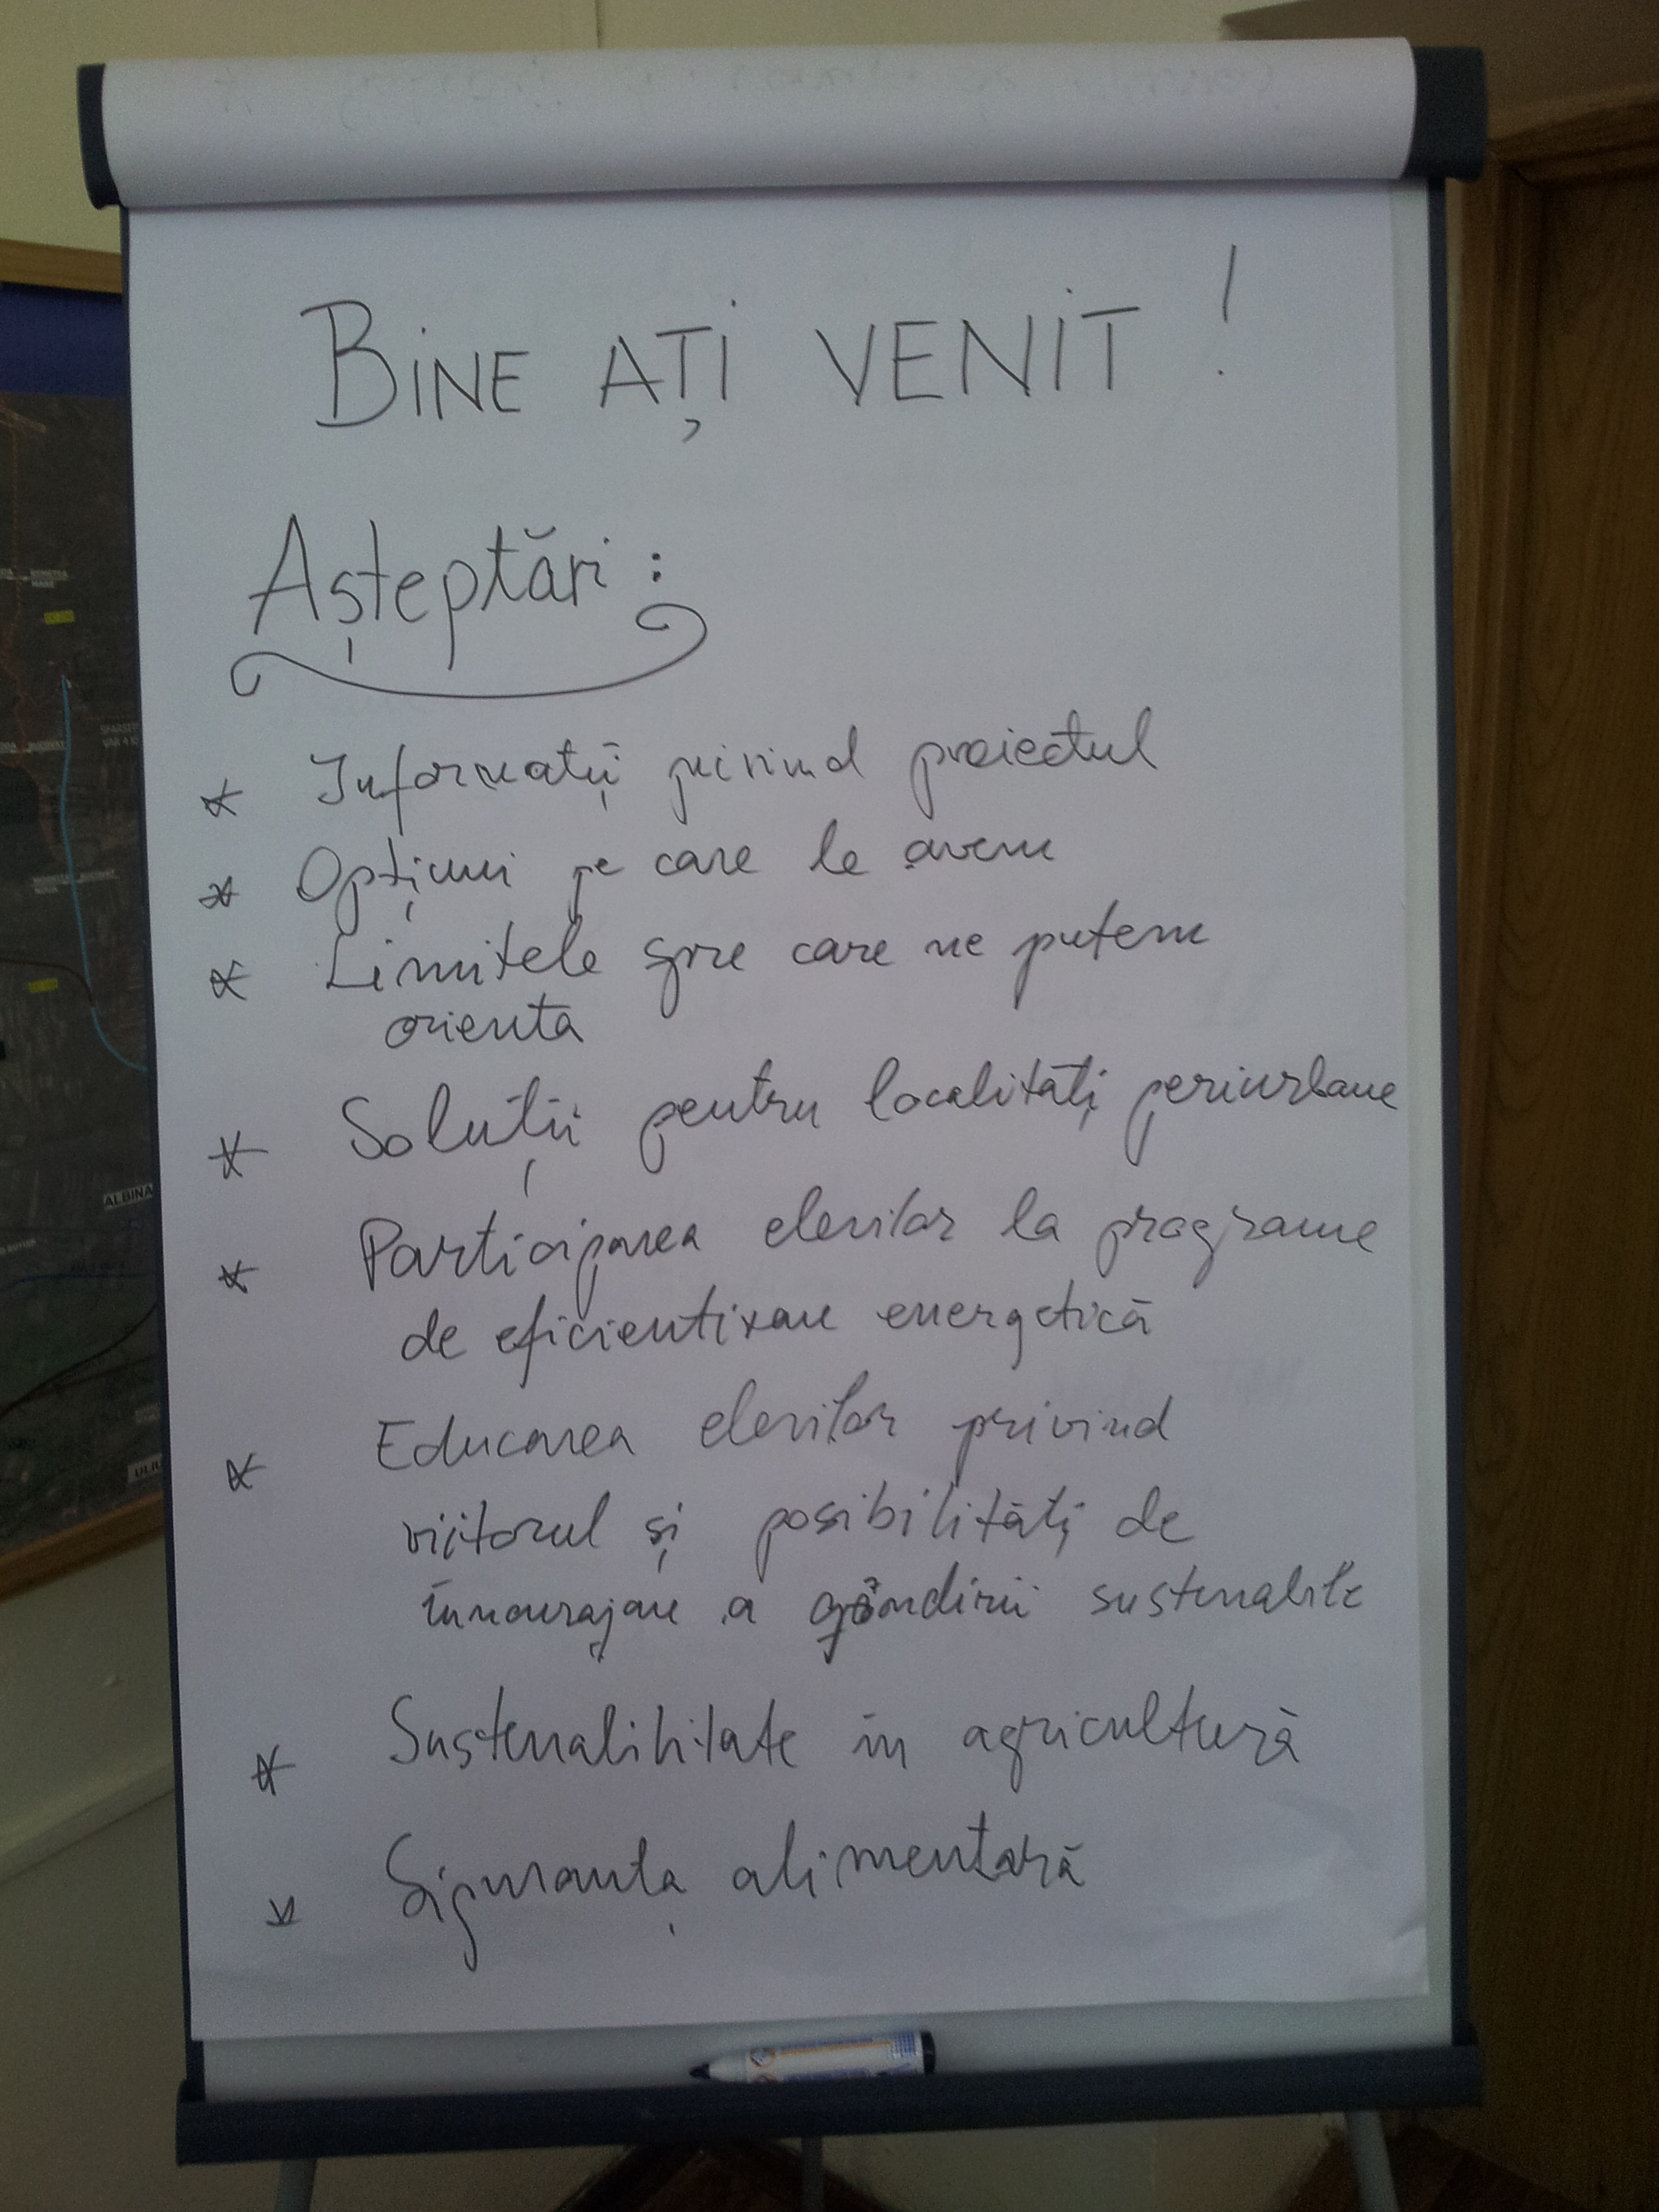 BINE AȚI VENIT !
Așteptări :
* Informații privind proiectul
* Opțiuni pe care le avem
* Limitele spre care ne putem
orienta
* Soluții pentru localități periurbane
* Participarea elevilor la programe
de eficientizare energetică
* Educarea elevilor privind
viitorul și posibilități de
încurajare a gândirii sustenabile
* Sustenabilitate în agricultură
* Siguranța alimentară
ALBINA